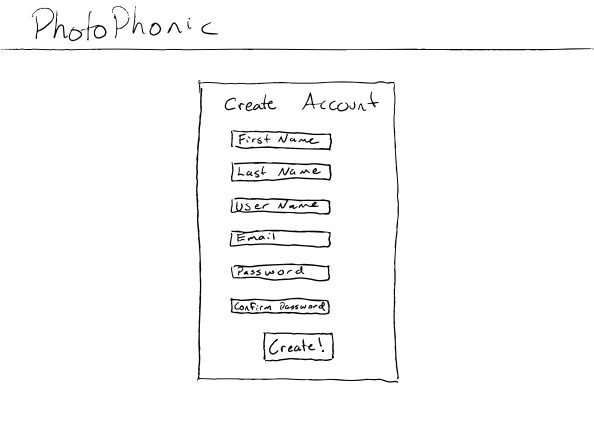 PhotoPhonic
Create Account
First Name
Last Name
User Name
Email
Password
Confirm Password
Create!